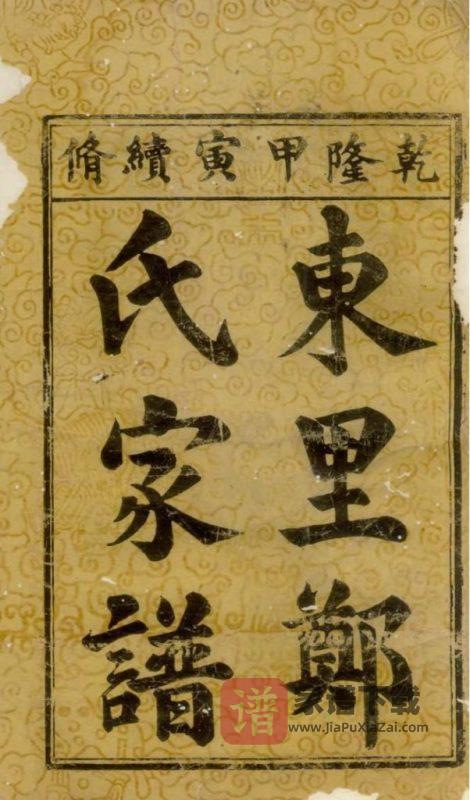 乾隆甲寅續脩
東里鄭
氏家譜
谱 家谱下载
www.JiaPuXiaZai.com